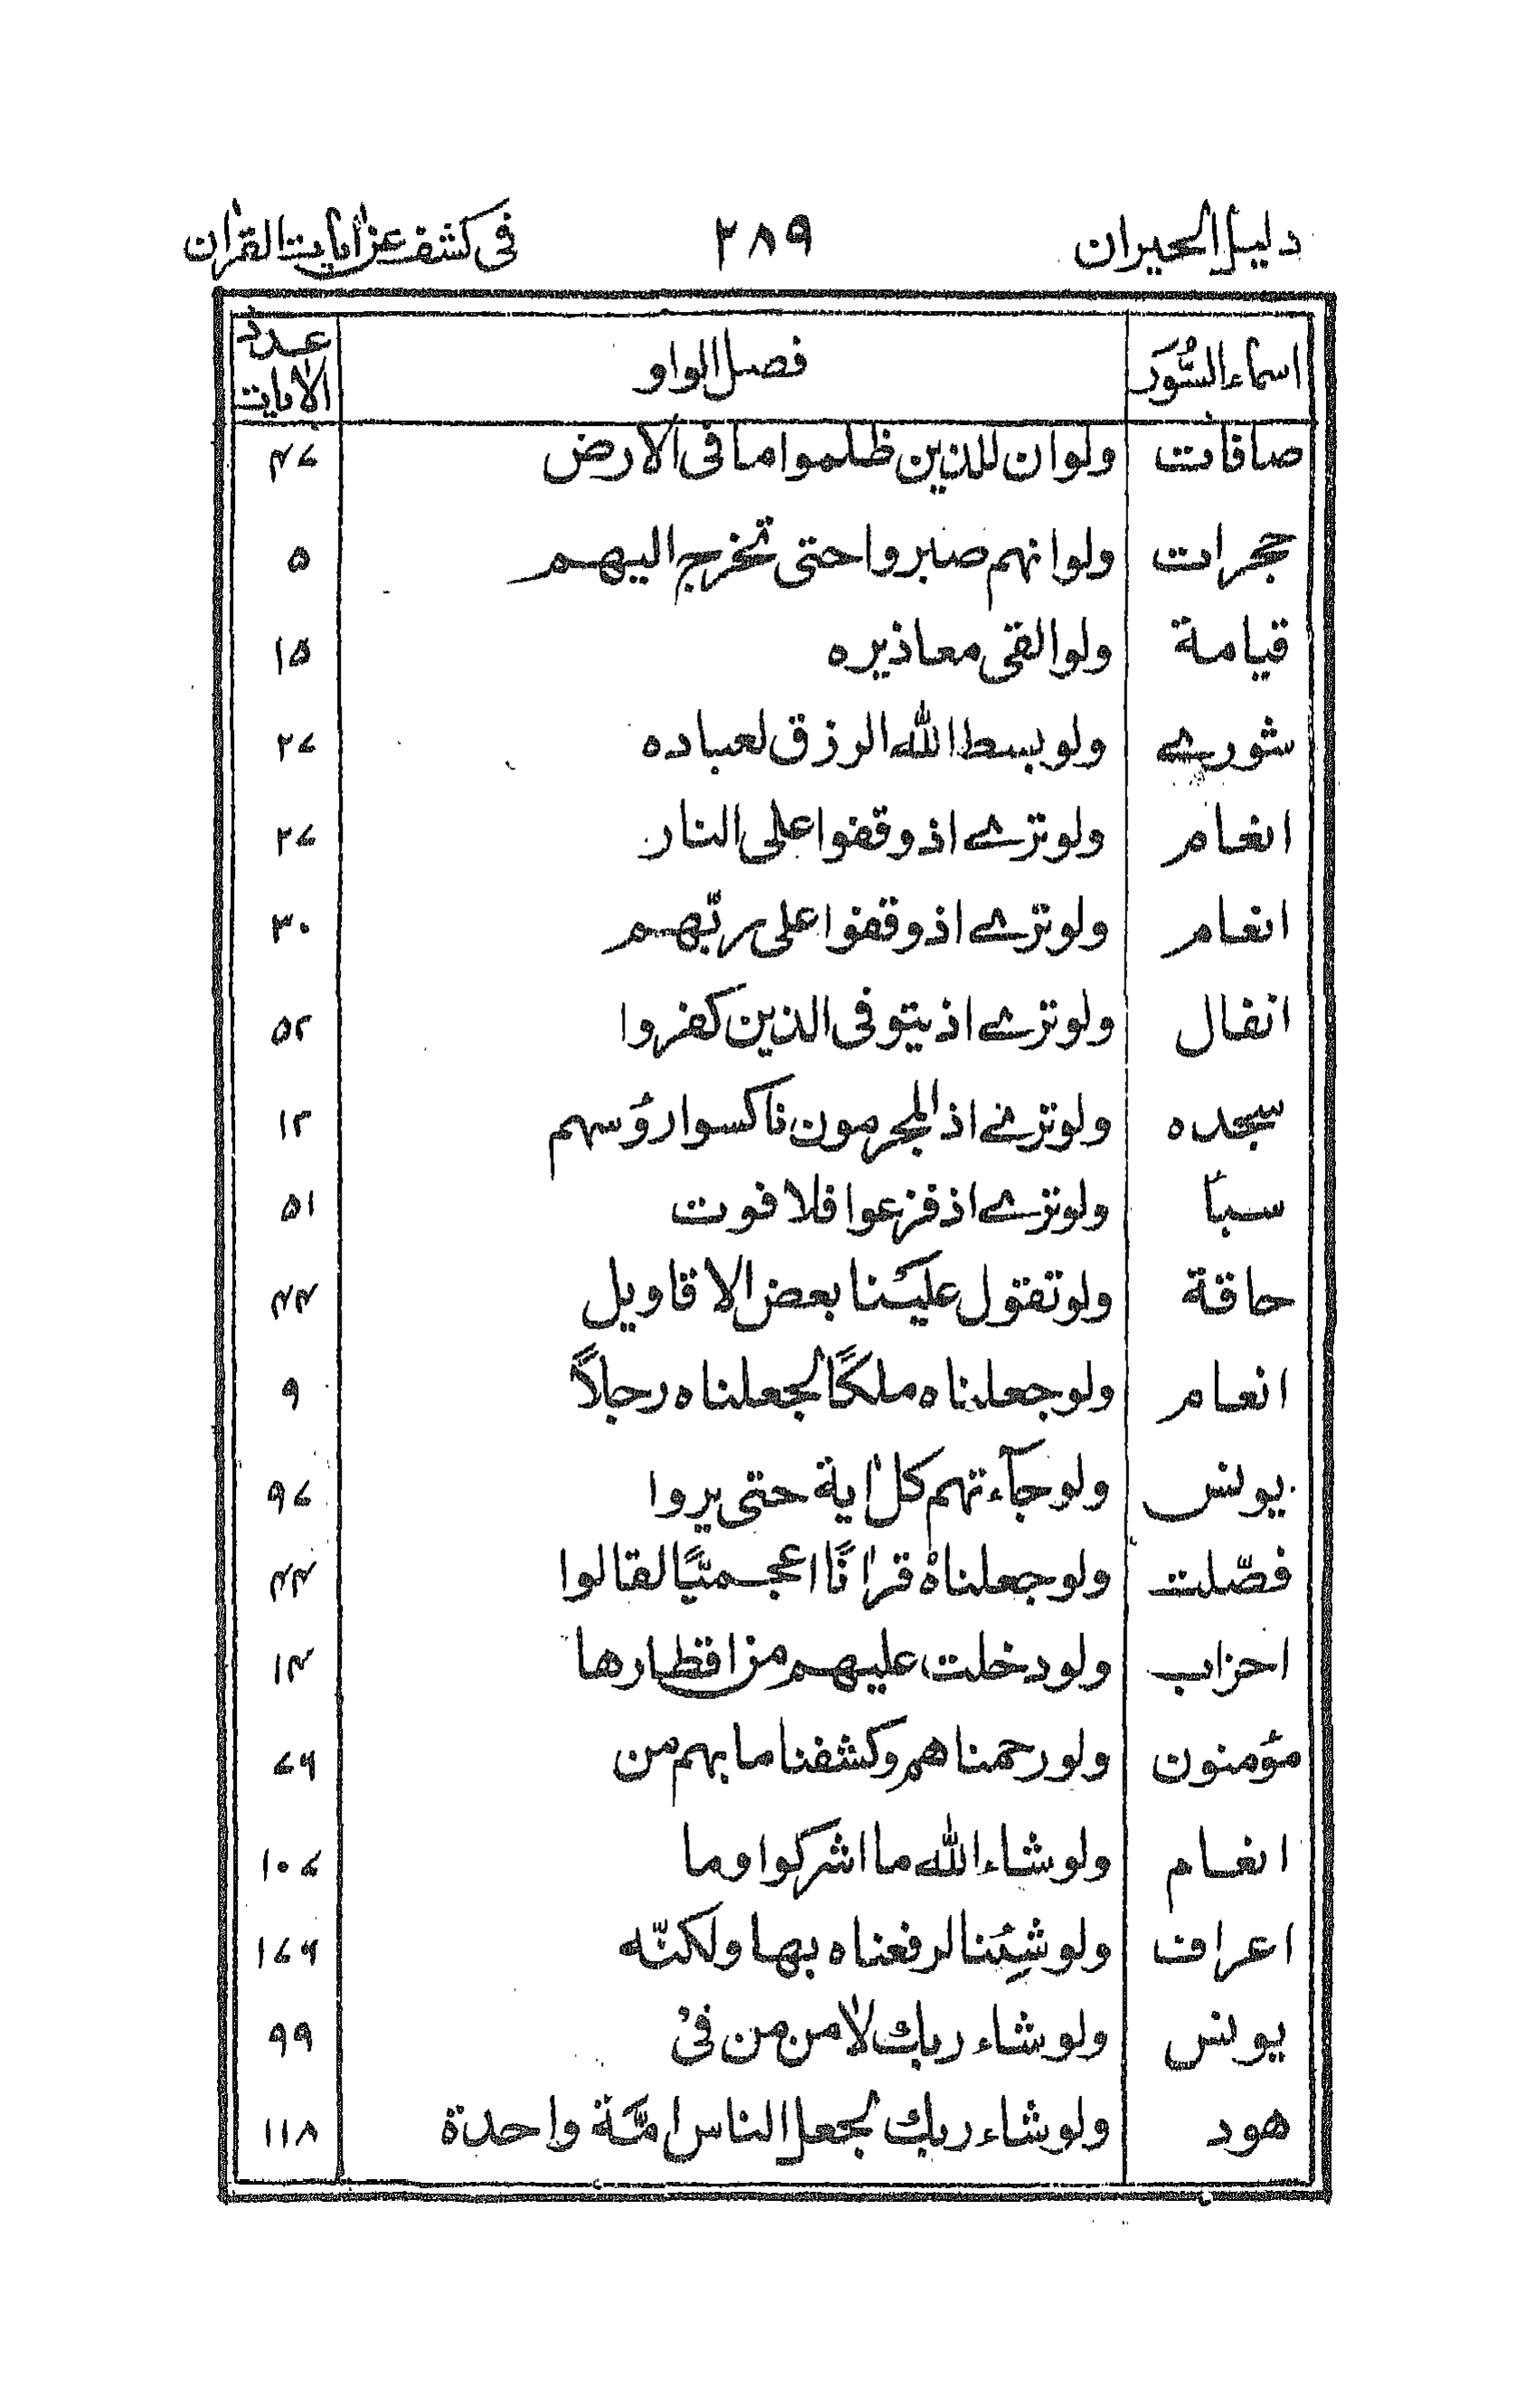 دليل الحيران ٢٨٩ فى كشف عن اٰيات القراٰن
اسماء السُّوَر فصل الواو عدد الاٰيات
صافات ولو ان للذين ظلموا ما فى الارض ۴۷
حجرات ولو انهم صبروا حتى تخرج اليهم ۵
قيامة ولو القى معاذيره ۱۵
شورے ولو بسط الله الرزق لعباده ۲۷
انعام ولو ترے اذ وقفوا على النار ۲۷
انعام ولو ترے اذ وقفوا على ربّهم ۳۰
انفال ولو ترے اذ يتوفى الذين كفروا ۵۲
سجده ولو ترے اذ المجرمون ناكسوا رؤسهم ۱۲
سبأ ولو ترے اذ فزعوا فلا فوت ۵۱
حاقة ولو تقوّل علينا بعض الاقاويل ۴۴
انعام ولو جعلناه ملكًا لجعلناه رجلاً ۹
يونس ولو جآءتهم كل اٰية حتى يروا ۹۷
فصّلت ولو جعلناهُ قراٰنًا اعجميًّا لقالوا ۴۴
احزاب ولو دخلت عليهم من اقطارها ۱۴
مؤمنون ولو رحمناهم وكشفنا ما بهم من ۷۶
انعام ولو شاء الله ما اشركوا وما ۱۰۷
اعراف ولو شِئنا لرفعناه بها ولكنّه ۱۷۶
يونس ولو شاء ربك لاٰمن من فىْ ۹۹
هود ولو شاء ربك لجعل الناس امّة واحدة ۱۱۸